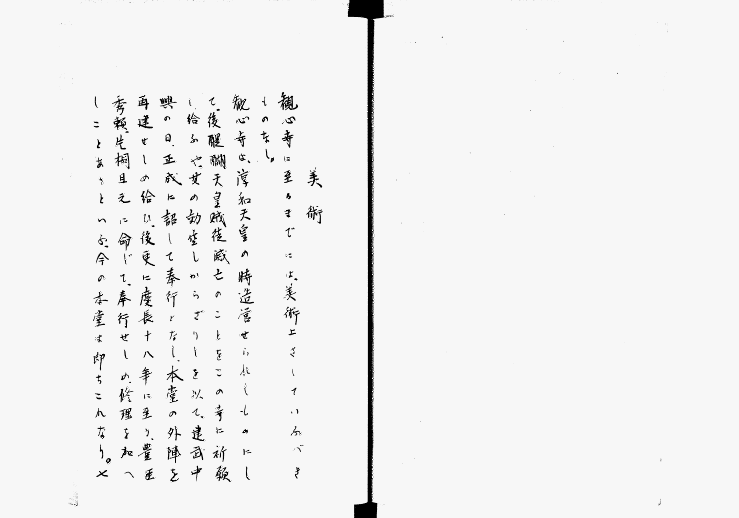 美術
観心寺に至るまでには、美術上さしていふべき
ものなし。
観心寺は、淳和天皇の時造営せられしものにし
て、後醍醐天皇賊徒滅亡のことをこの寺に祈願
し給ふや、其の効空しからざりしを以て、建武中
興の日、正成に詔して奉行となし、本堂の外陣を
再建せしめ給ひ、後更に慶長十八年に至り、豊臣
秀頼、片桐且元に命じて、奉行せしめ、修理を加へ
しことありといふ、今の本堂は即ちこれなり。